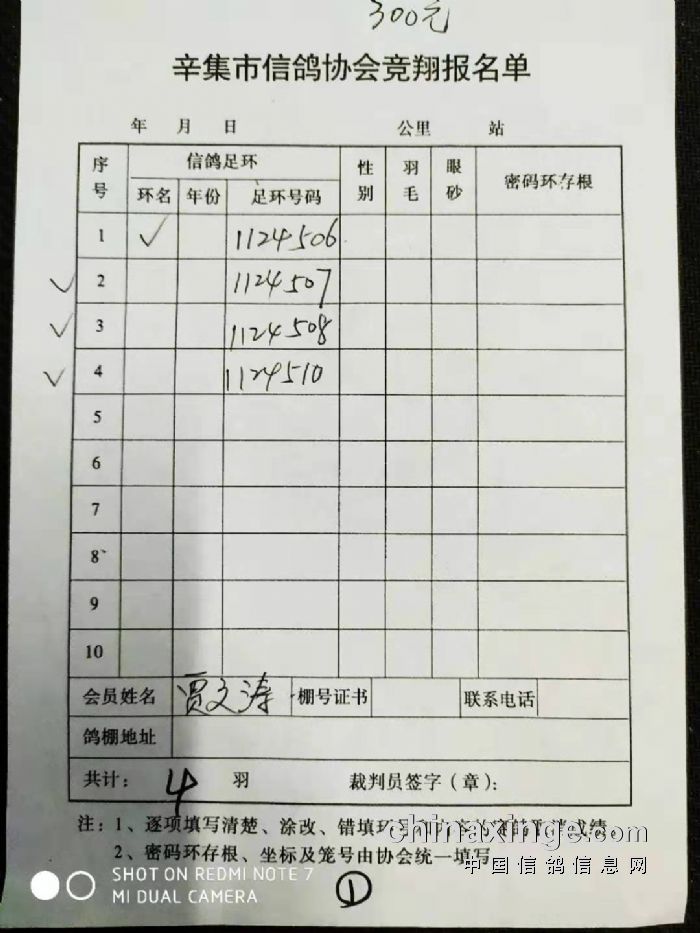 300元
辛集市信鸽协会竞翔报名单
年 月 日 公里 站
序号 信鸽足环 性别 羽毛 眼砂 密码环存根
环名 年份 足环号码
1 ✓ 1124506
✓ 2 1124507
✓ 3 1124508
✓ 4 1124510
5
6
7
8
9
10
会员姓名 贾文涛 棚号证书 联系电话
鸽棚地址
共计: 4 羽 裁判员签字(章):
注: 1、逐项填写清楚、涂改、错填环号 成绩。
2、密码环存根、坐标及笼号由协会统一填写
chinaxinge.com
中国信鸽信息网
SHOT ON REDMI NOTE 7
MI DUAL CAMERA
①